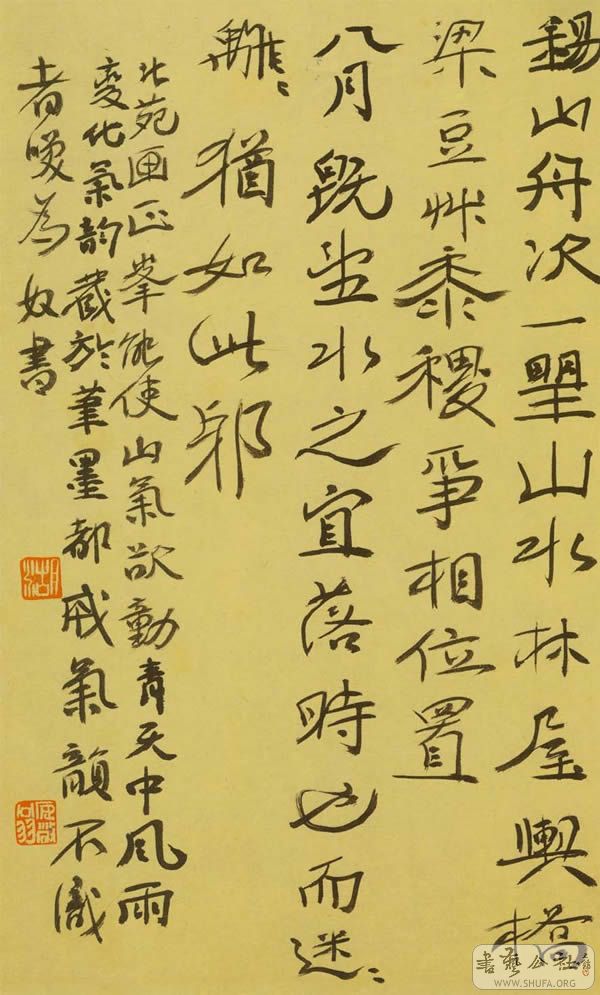 錫山舟次一望山水林屋與橋
梁豆艸黍稷爭相位置
八月既望水之宜落時也而迷〻
離〻猶如此邪
北苑画正峯能使山氣欲動青天中風雨
變化氣韵藏於筆墨都成氣韻不識
者咲為奴書
書藝公社
WWW.SHUFA.ORG